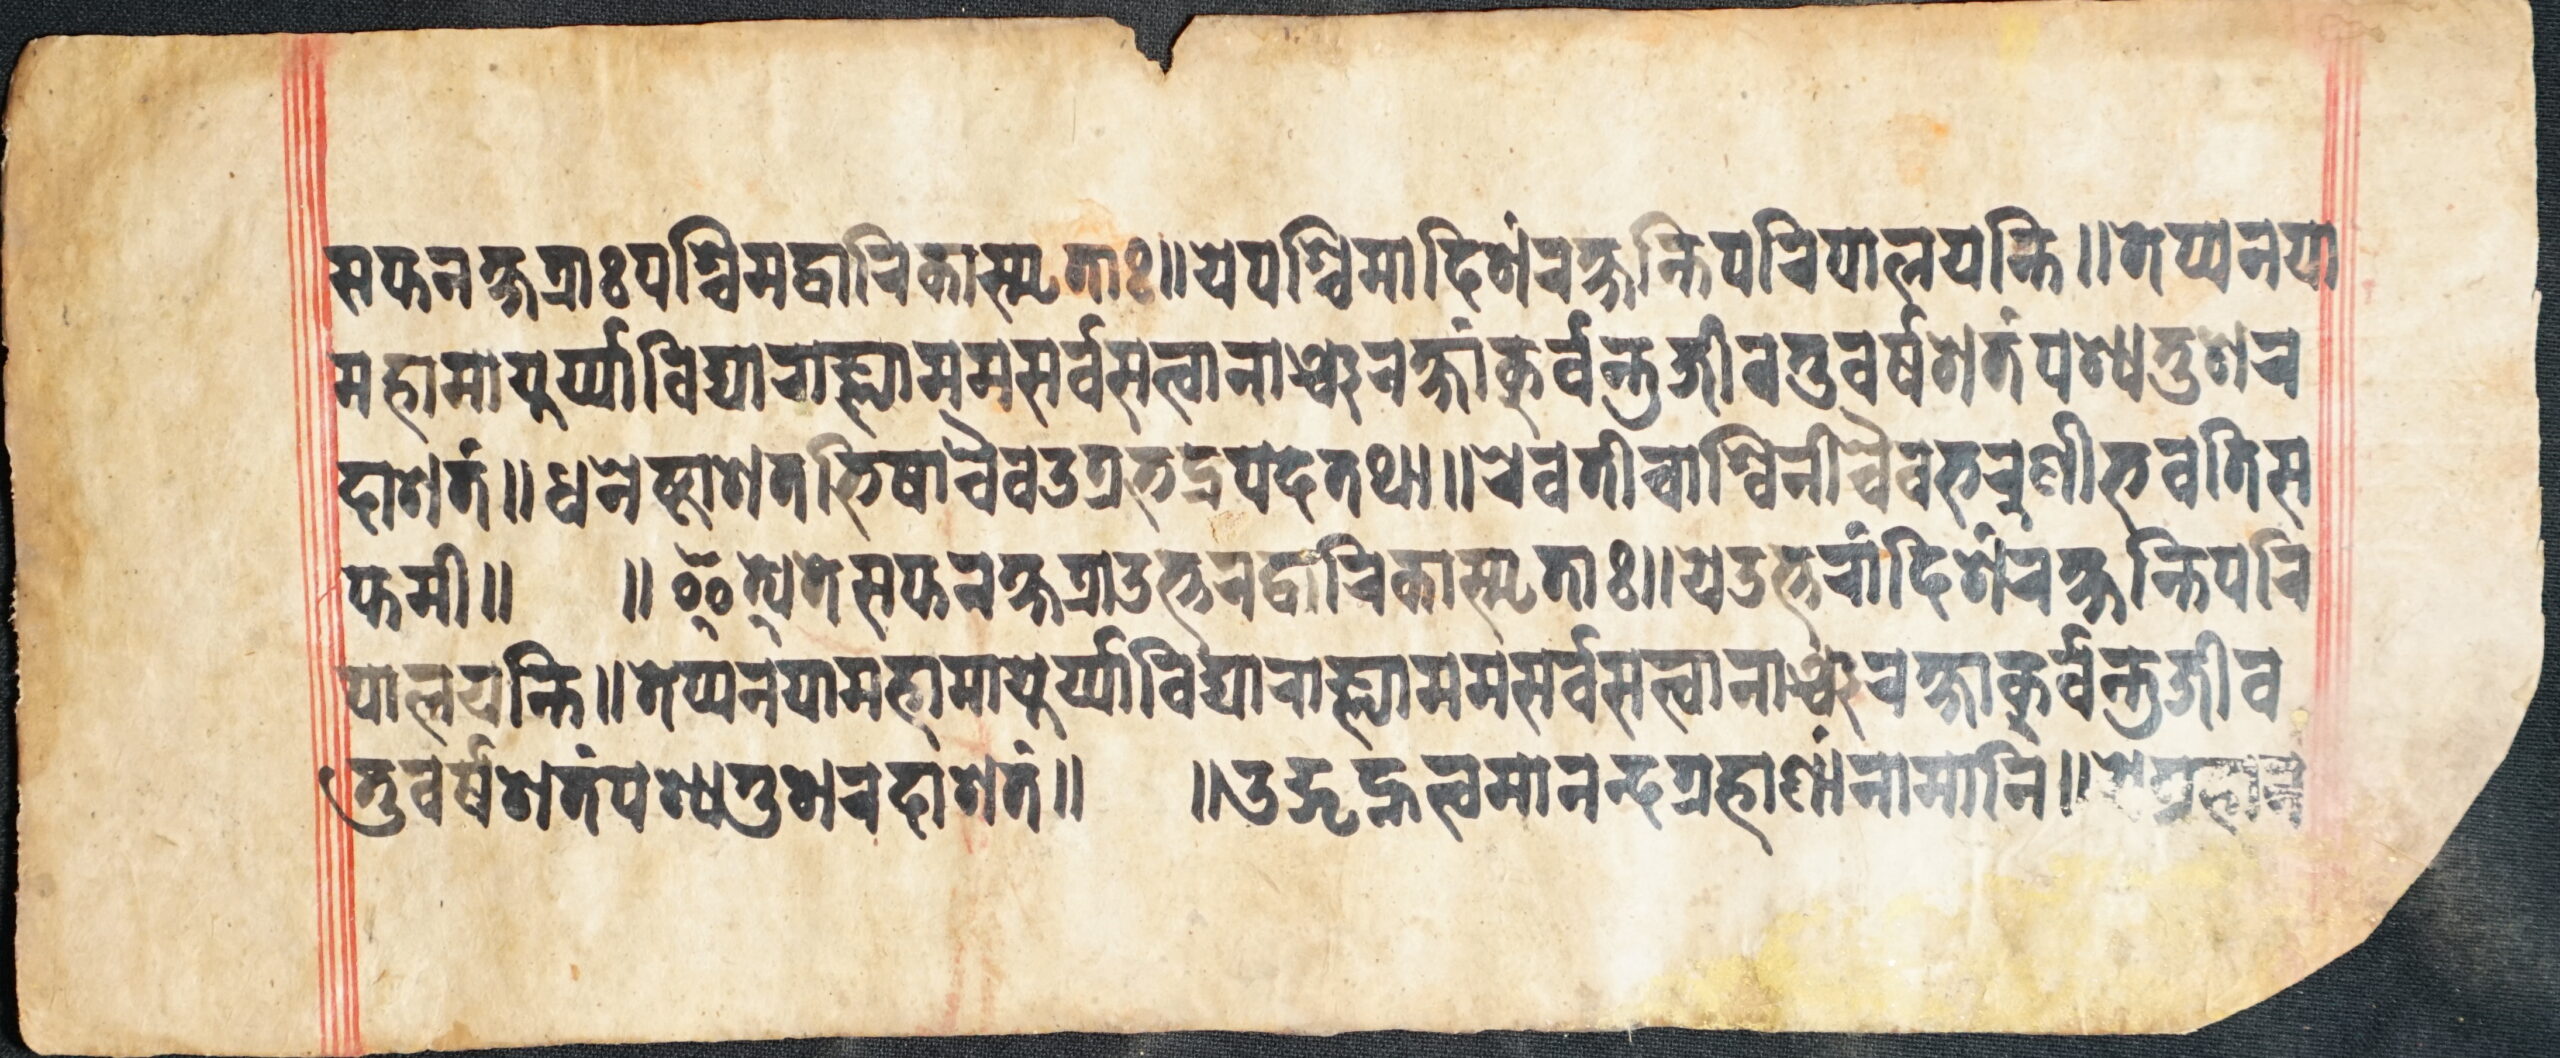 सप्तनक्षत्राःपश्चिमद्वारिकास्मृताः॥येपश्चिमादिशंरक्षन्तिपरिपालयन्ति॥तेप्यनया
महामायुर्य्याविद्याराज्ञ्याममसर्वसत्वानाञ्चरक्षांकुर्वन्तुजीवतुवर्षशतंपश्यतुशर
दाशतं॥धनेष्ठाशतभिषाचैवउत्रभद्रपदतथा॥रेवतीचाश्विनीचैवभरुणीभवतिस
प्तमी॥ ॥इत्येतेसप्तनक्षत्राउत्तरद्वारिकास्मृताः॥येउत्तरांदिशंरक्षन्तिपरि
पालयन्ति॥तेप्यनयामहामायुर्य्याविद्याराज्ञ्याममसर्वसत्वानाञ्चरक्षाकुर्वन्तुजीव
तुवर्षशतंपश्यतुशरदांशतं॥ ॥उद्गृह्नत्वमानन्दग्रहाणांनामानि॥येग्रहान